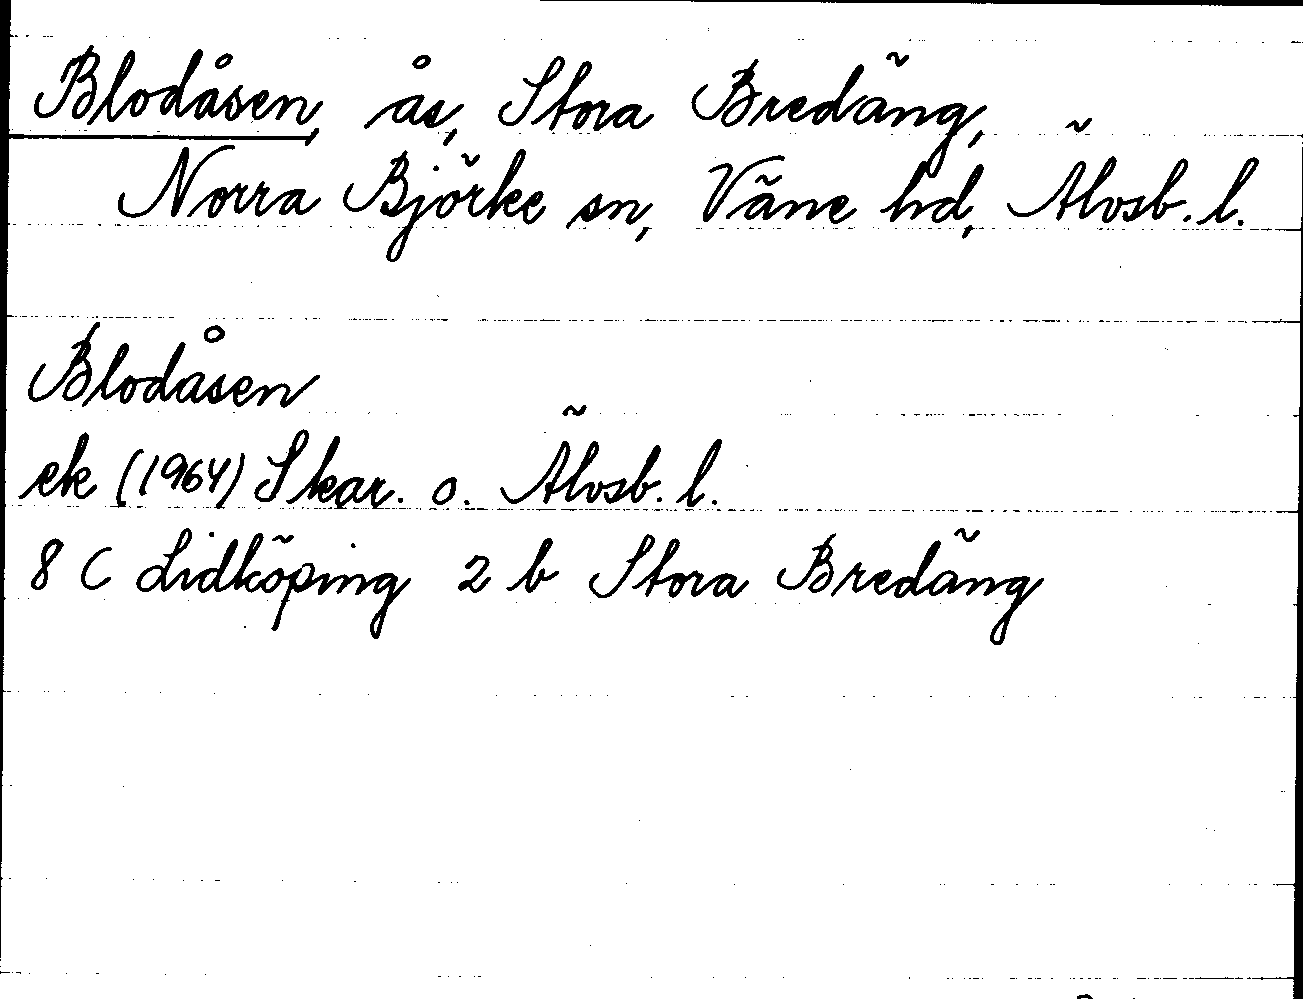 Blodåsen, ås, Stora Bredäng,
Norra Björke sn, Väne hd, Älvsb. l.
Blodåsen
ek (1964) Skar. o. Älvsb. l.
8 C Lidköping 2 b Stora Bredäng